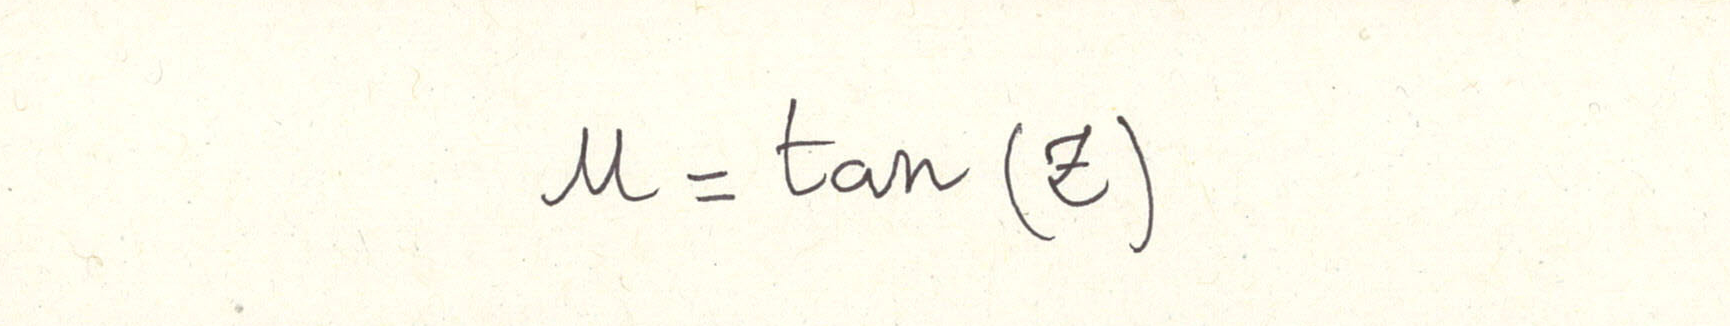 M = tan (z)